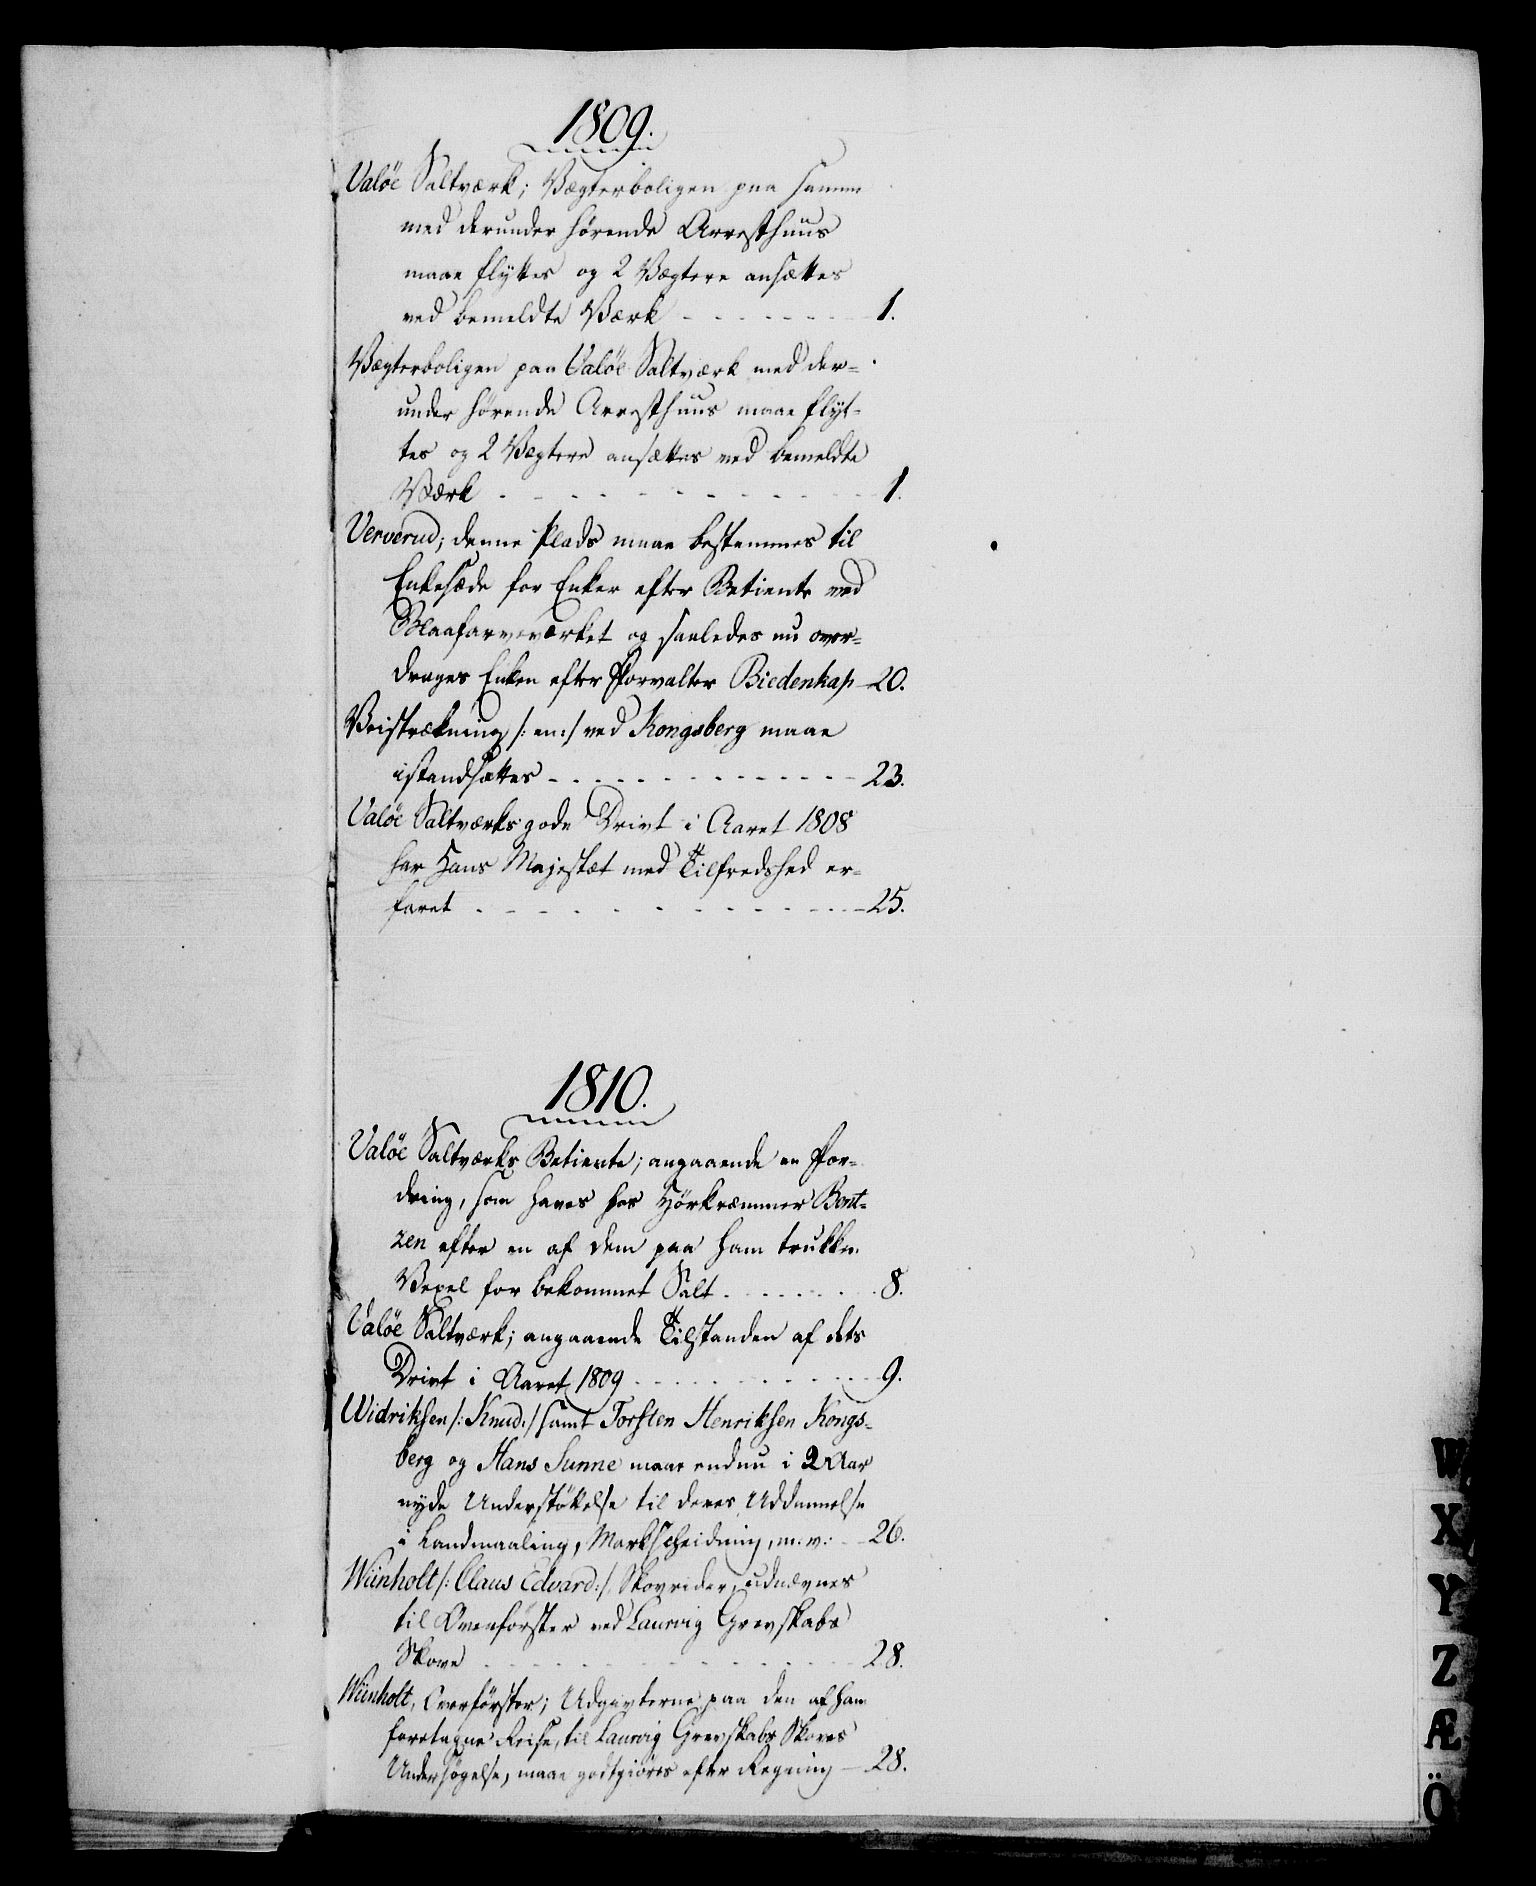 1809.
Valöe Saltværk; Vægterboligen paa samme
med derunder hørende Arresthuus
maae flyttes og 2 Vægtere ansættes
ved bemeldte Værk - - - - - - - 1.
Vægterboligen paa Valöe Saltværk med der=
under hørende Arresthuus maae flyt=
tes og 2 Vægtere ansættes ved bemeldte
Værk - - - - - - - - - - - 1.
Ververud; denne Plads maae bestemmes til
Enkesæde for Enker efter Betiente ved
Blaafarveværket og saaledes nu over=
drages Enken efter Forvalter Biedenkap - 20.
Veistrækning /: en :/ ved Kongsberg maae
istandsættes - - - - - - - - - - - 23.
Valöe Saltværks gode Drivt i Aaret 1808
har Hans Majestæt med Tilfredshed er=
faret - - - - - - - - - - - 25.
1810.
Valöe Saltværks Betiente; angaaende en For=
dring, som haves hos Hörkræmmer Bent=
zen efter en af dem paa ham trukken
Vexel for bekommet Salt - - - - - - 8.
Valöe Saltværk; angaaende Tilstanden af dets
Drivt i Aaret 1809 - - - - - - - - - 9.
Widriksen /: Knud :/ samt Torsten Henriksen Kongs=
berg og Hans Sunne maae endnu i 2 Aar
nyde Understöttelse til deres Uddannelse
i Landmaaling, Markscheidning, m.v: - - 26.
Wiinholt /: Claus Edvard :/, Skovrider, udnævnes
til Overförster ved Laurvig Grevskabs
Skove - - - - - - - - - - - 28.
Wiinholt, Overförster; Udgivterne paa den af ham
foretagne Reise, til Laurvig Grevskabs Skoves
Undersøgelse, maae godtgiöres efter Regning - 28.
W
X
Y
Z
Æ
Ö